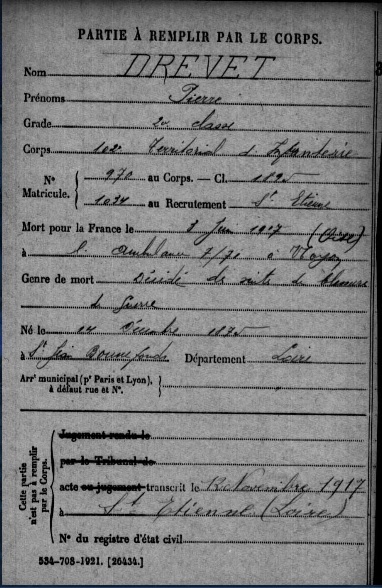 PARTIE À REMPLIR PAR LE CORPS.
Nom DREVET
Prénoms Pierre
Grade 2e classe
Corps 102e Territorial d'Infanterie
N° Matricule. { 970 au Corps. — Cl. 1895
1034 au Recrutement St Etienne
Mort pour la France le 3 Juin 1917 (Oise)
à l'Ambulance 2/71 à Noyon
Genre de mort Décédé de suites de blessures
de guerre
Né le Décembre 1875
à St Jean Bonnefonds Département Loire
Arrt municipal (pr Paris et Lyon), }
à défaut rue et N°.
Cette partie n'est pas à remplir par le Corps. {
Jugement rendu le
par le Tribunal de
acte ou jugement transcrit le 12 Novembre 1917
à St Etienne (Loire)
N° du registre d'état civil
534-708-1921. [26434.]